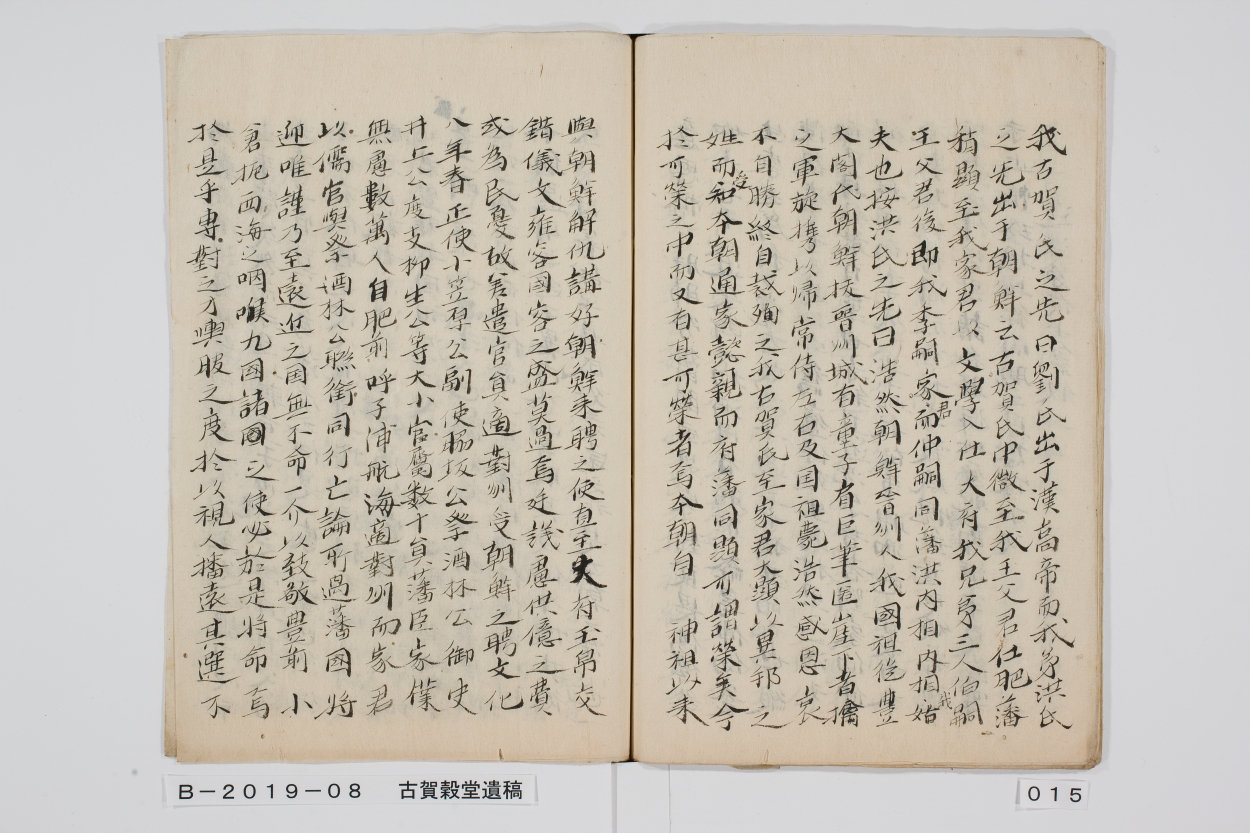 我古賀氏之先曰劉氏出于漢高帝而我弟洪氏
之先出于朝鮮云古賀氏中微至我王父君仕肥藩
稍顯至我家君以文學入仕大府我兄弟三人伯嗣
王父君後即我季嗣家君而仲嗣同藩洪内相内相我姑
夫也按洪氏之先曰浩然朝鮮晋州人我國祖從豊
大閤代朝鮮拔晋州城有童子肩巨筆匿崖下者擒
之軍旋携以帰常侍左右及国祖薨浩然感恩哀
不自勝終自裁殉之我古賀氏至家君大顯以異邦之
姓而受知本朝通家懿親而府藩同顯可謂榮矣今
於可榮之中而又有甚可榮者焉本朝自 神祖以来
與朝鮮解仇講好朝鮮来聘之使直至大府玉帛交
錯儀文雍容国容之盛莫過焉廷議慮供億之費
或為民憂故差遣官員適對州受朝鮮之聘文化
八年春正使小笠原公副使脇坂公祭酒林公御史
井上公度支柳生公等大小官属数十員藩臣家僕
無慮數萬人自肥前呼子浦航海適對州而家君
以儒官與祭酒林公聮銜同行亡論所過藩國將
迎唯謹乃至遠近之国無不命一介以致敬豊前小
倉扼西海之咽喉九國諸國之使必於是將命焉
於是乎專對之才輿服之度於以視人播遠其選不
B－2019－08 古賀穀堂遺稿
015